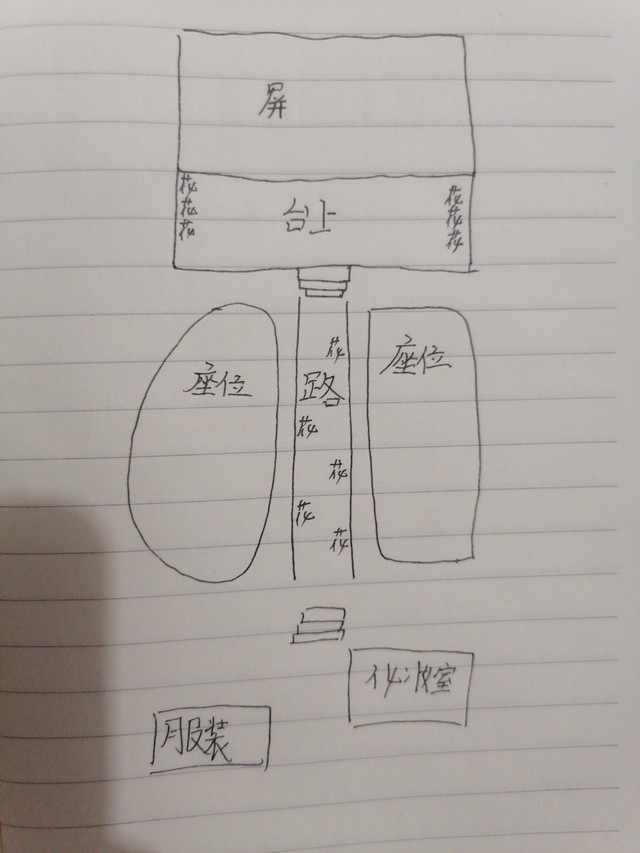 屏
花
花
花
台上
花
花
花
座位
花
路
花
花
花
花
座位
化妆室
服装